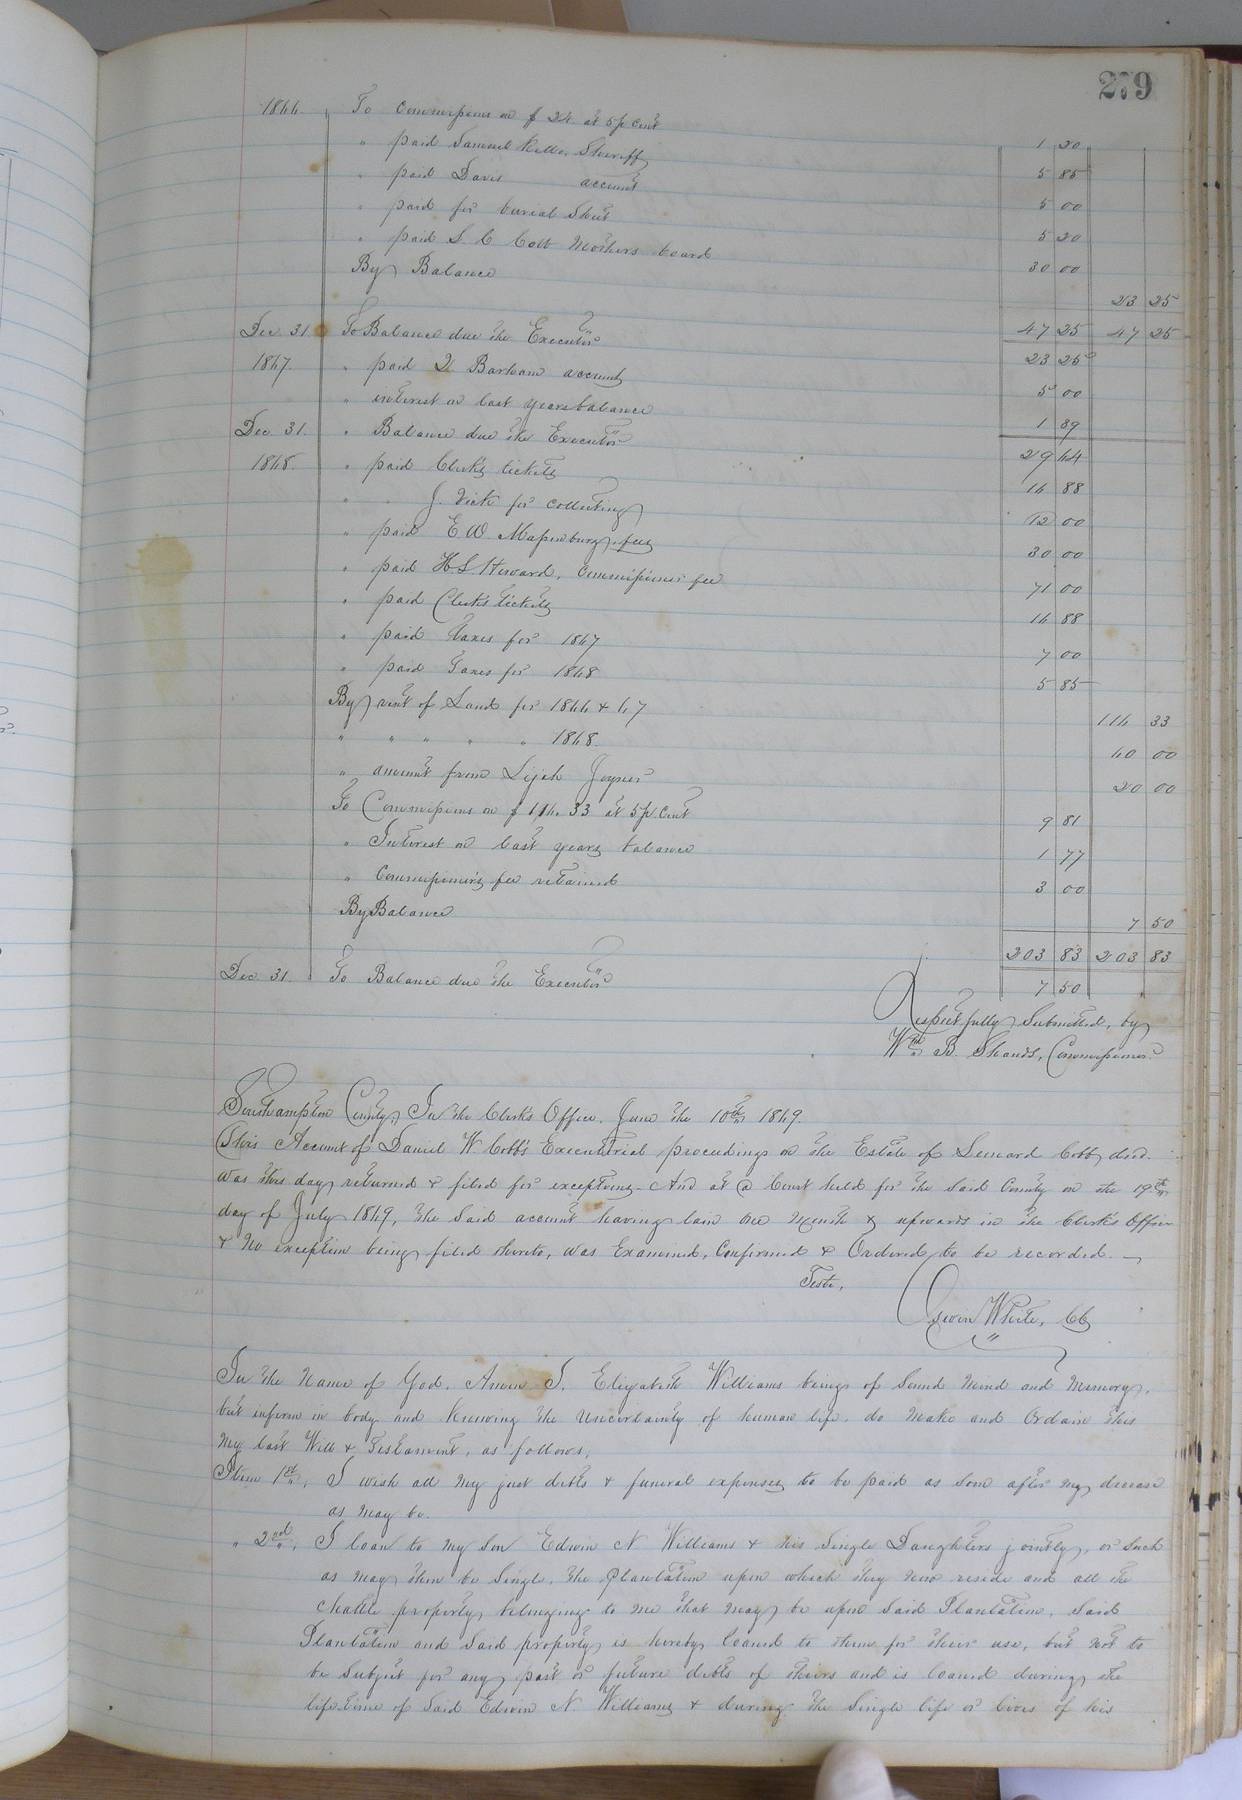 279
1866. To Commissions on $ 24 at 5 p cent 1 20
" paid Samuel Kello, Sheriff 5 85
" paid Davis account 5 00
" paid for burial Shirt 5 20
" paid S. C Cobb Mothers board 30 00
By Balance 23 25
47 25 47 25
Dec. 31. To Balance due the Executor 23 25
1867. " paid Barham account 5 00
" interest on last years balance 1 39
Dec. 31. " Balance due the Executor 29 64
1868. " paid Clerk's tickets 16 88
" " J. Vick for collecting 12 00
" paid E W Massenburg, fees 30 00
" paid H. S. Howard, Commissioner fee 71 00
" paid Clerk's tickets 16 88
" paid Taxes for 1867 7 00
" paid Taxes for 1868 5 85
By rent of Land for 1866 & 67 116 33
" " " " " 1868. 60 00
" amount from Lijah Joyner 20 00
To Commissions on $ 33 at 5 p. Cent 9 81
" Interest on last years balance 1 77
" Commissioner's fee retained 3 00
By Balance 7 50
203 83 203 83
Dec. 31. To Balance due the Executor 7 50
Respectfully Submitted, by
Wm B. Shands, Commissioner
Southampton County, In the Clerk's Office, June the 10th 1869.
This Account of Daniel W Cobb's Executorial proceedings on the Estate of Lenoard Cobb, decd.
was this day returned & filed for exceptions. And at a Court held for the said County on the 19th
day of July 1869, the said account having lain one Month & upwards in the Clerk's Office
& no exception being filed thereto, was Examined, Confirmed & Ordered to be recorded. —
Teste,
Edwin White, CC
In the Name of God, Amen I, Elizabeth Williams being of Sound Mind and Memory,
but infirm in body and Knowing the Uncertainty of human life, do Make and Ordain this
My last Will & Testament, as follows,
Item 1st, I wish all My just debts & funeral expenses to be paid as soon after My decease
as may be.
" 2nd, I loan to My Son Edwin N Williams & his Single Daughters jointly, or such
as may then be Single, the Plantation upon which they now reside and all the
Chattle property belonging to me that may be upon Said Plantation, Said
Plantation and Said property is hereby loaned to them for their use, but not to
be Subject for any past or future debts of theirs and is loaned during the
lifetime of Said Edwin N. Williams & during the Single life or lives of his